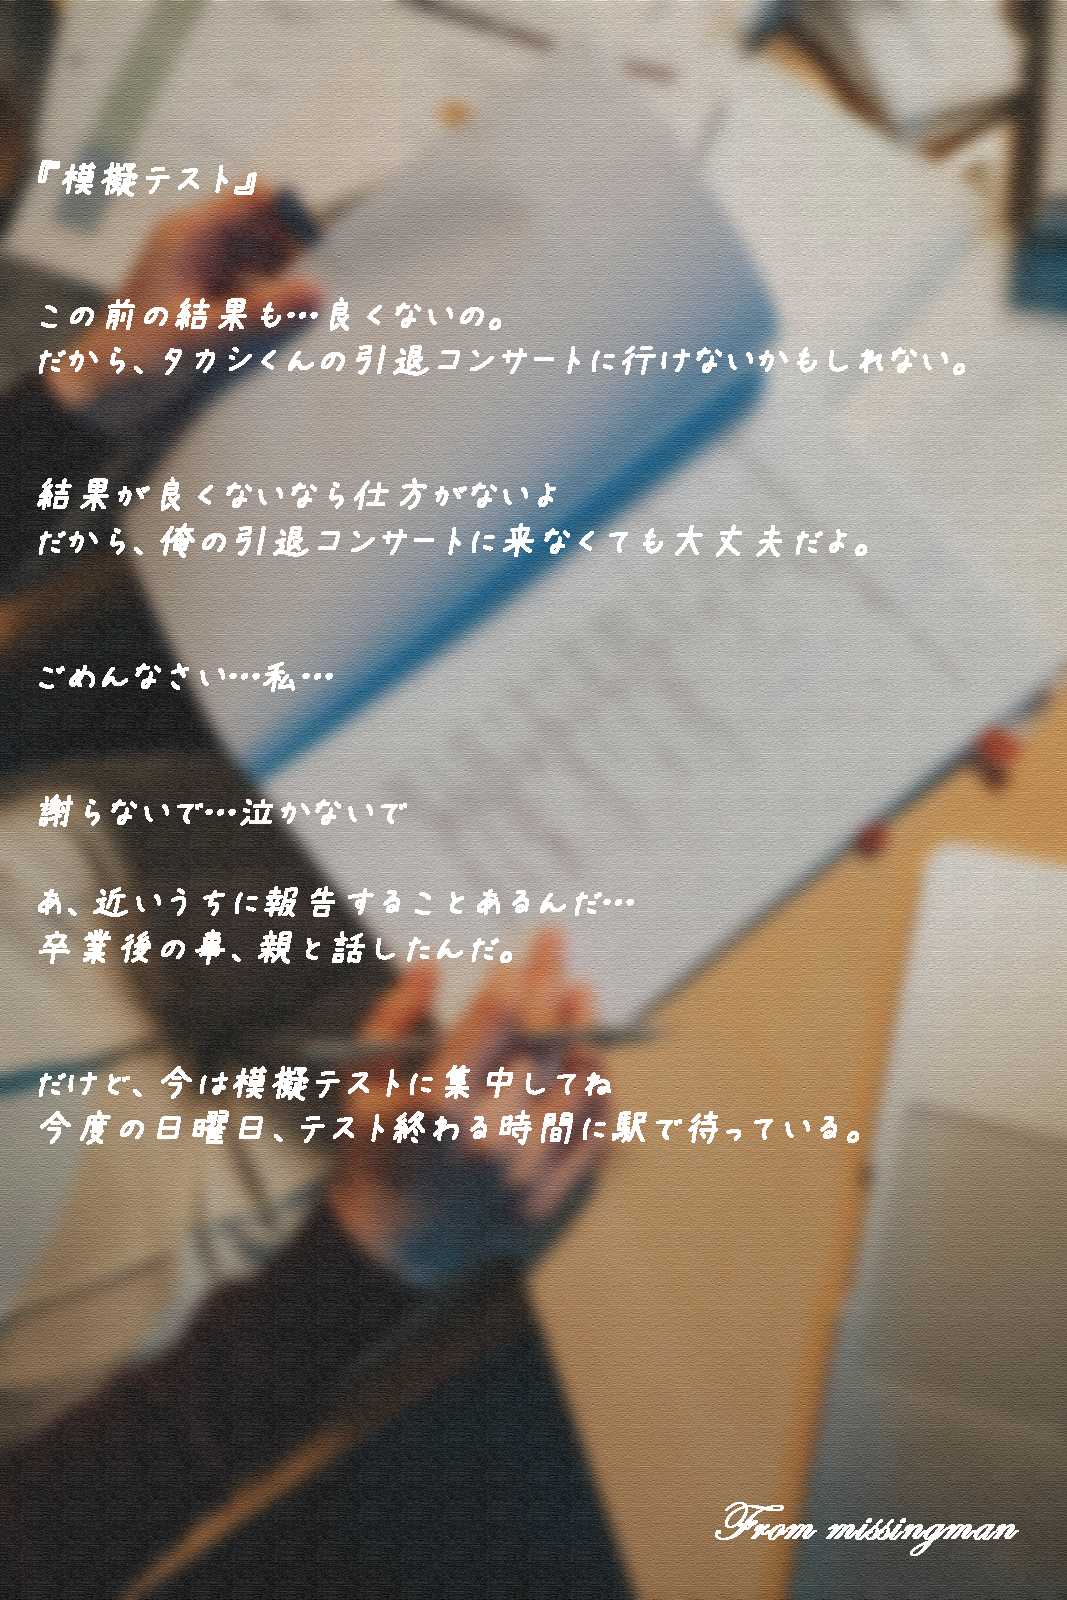 『模擬テスト』
この前の結果も…良くないの。
だから、タカシくんの引退コンサートに行けないかもしれない。
結果が良くないなら仕方がないよ
だから、俺の引退コンサートに来なくても大丈夫だよ。
ごめんなさい…私…
謝らないで…泣かないで
あ、近いうちに報告することあるんだ…
卒業後の事、親と話したんだ。
だけど、今は模擬テストに集中してね
今度の日曜日、テスト終わる時間に駅で待っている。
From missingman